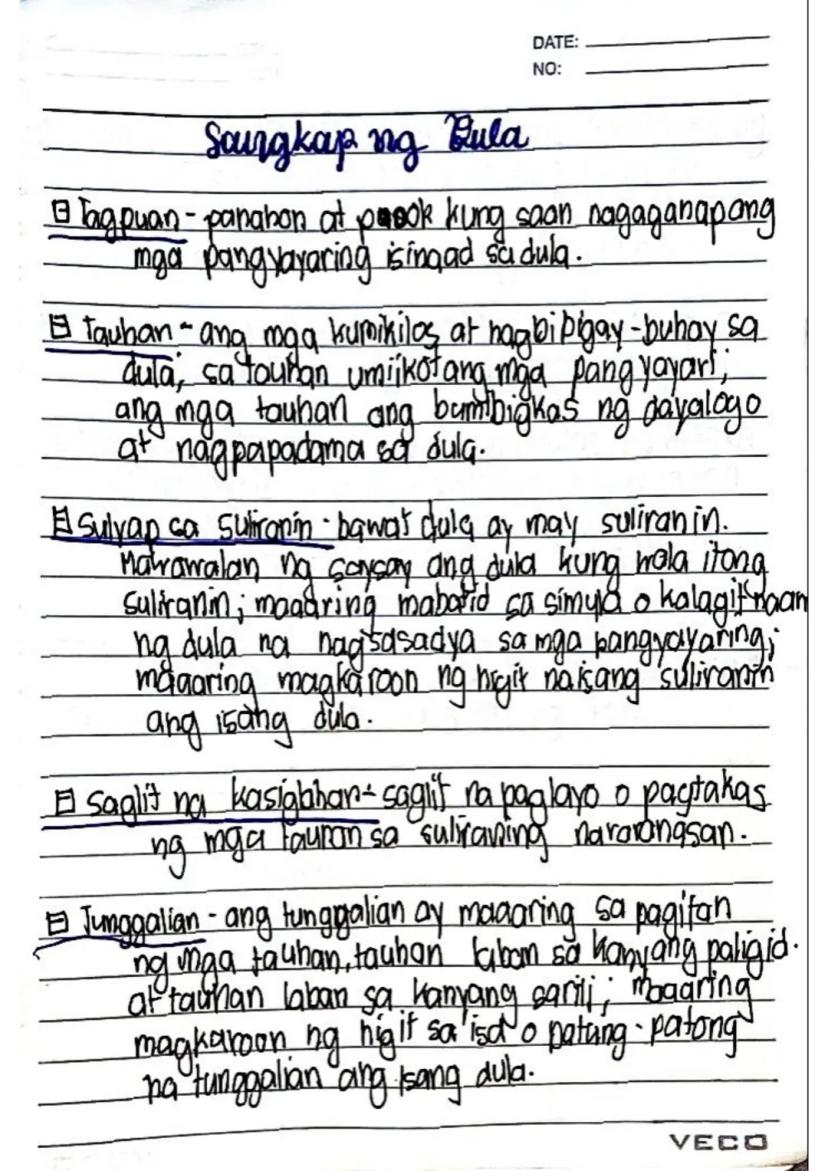 DATE:
NO:
Sangkap ng Dula
Tagpuan - panahon at pook kung saan nagaganap ang
mga pangyayaring isinaad sa dula.
Tauhan - ang mga kumikilos at nagbibigay-buhay sa
dula; sa tauhan umiikot ang mga pangyayari;
ang mga tauhan ang bumibigkas ng dayalogo
at nagpapadama sa dula.
Sulyap sa suliranin - bawat dula ay may suliranin.
Mawawalan ng saysay ang dula kung wala itong
suliranin; maaaring mabatid sa simula o kalagitnaan
ng dula na nagsasadya sa mga pangyayaring;
maaaring magkaroon ng higit na isang suliranin
ang isang dula.
Saglit na kasiglahan - saglit na paglayo o pagtakas
ng mga tauhan sa suliraning nararanasan.
Tunggalian - ang tunggalian ay maaaring sa pagitan
ng mga tauhan, tauhan laban sa kanyang paligid.
at tauhan laban sa kanyang sarili; maaaring
magkaroon ng higit sa isa o patung-patong
na tunggalian ang isang dula.
VECO